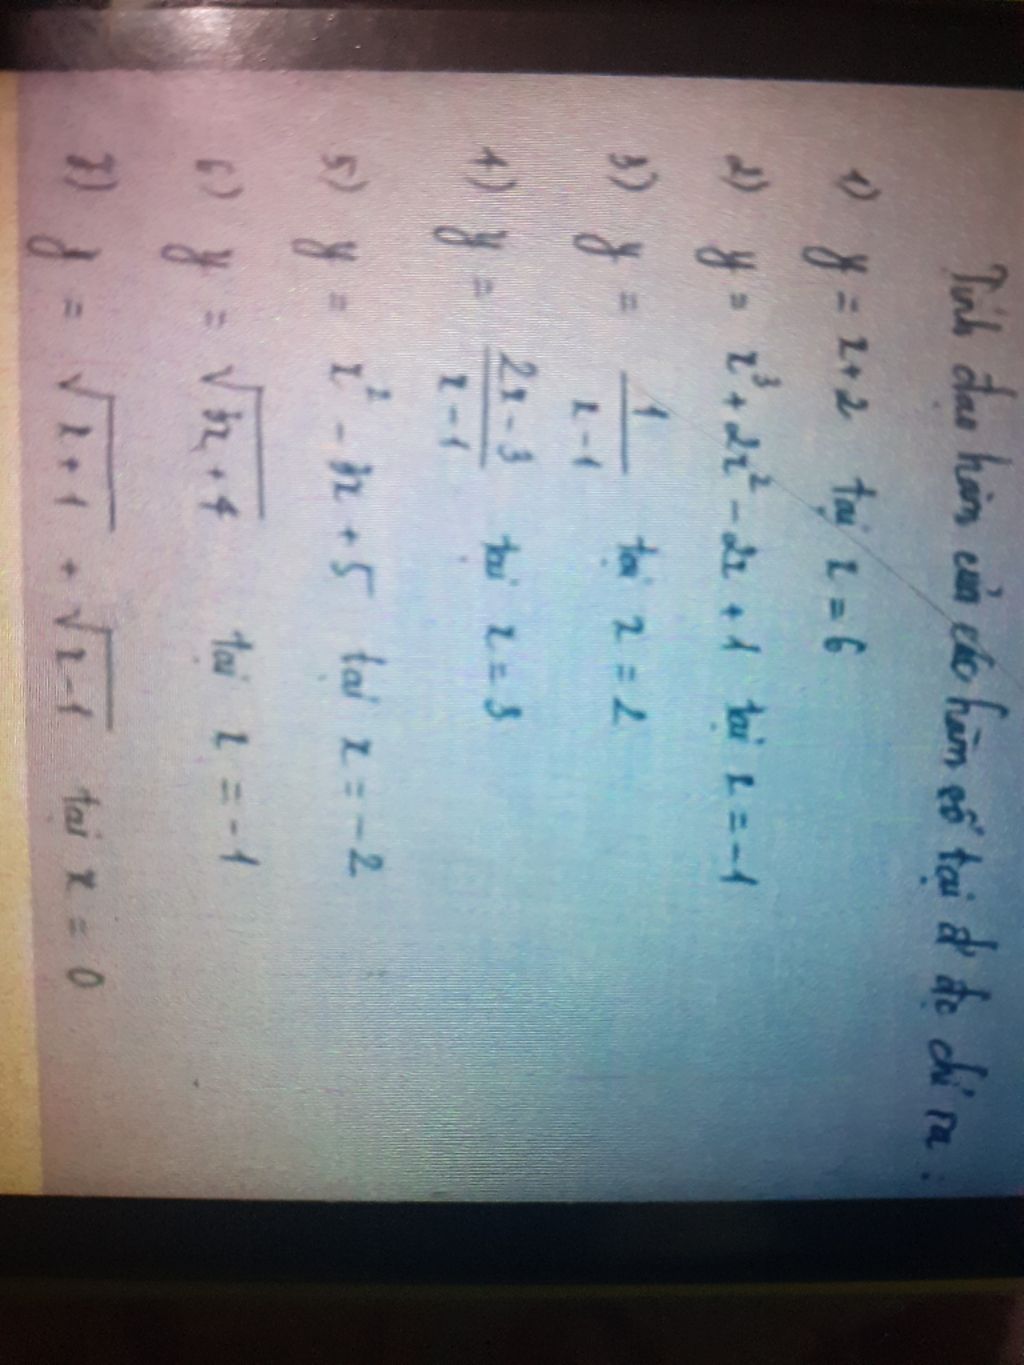 Tính đạo hàm của các hàm số tại đ' đc chỉ ra :
1) y = x+2 tại x = 6
2) y = x³ + 2x² - 2x + 1 tại x = -1
3) y = 1/(x-1) tại x = 2
4) y = (2x-3)/(x-1) tại x = 3
5) y = x² - 3x + 5 tại x = -2
6) y = √(3x+4) tại x = -1
7) y = √(x+1) + √(x-1) tại x = 0